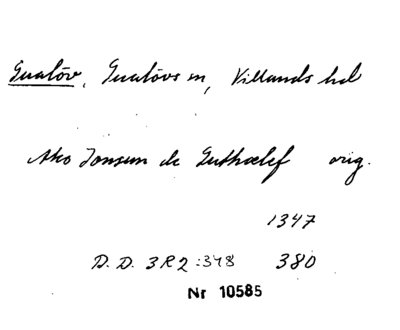 Gualöv, Gualövs sn, Villands hd
Ako Jonsun de Guthælef orig.
1347
D. D. 3R2:348 380
Nr 10585